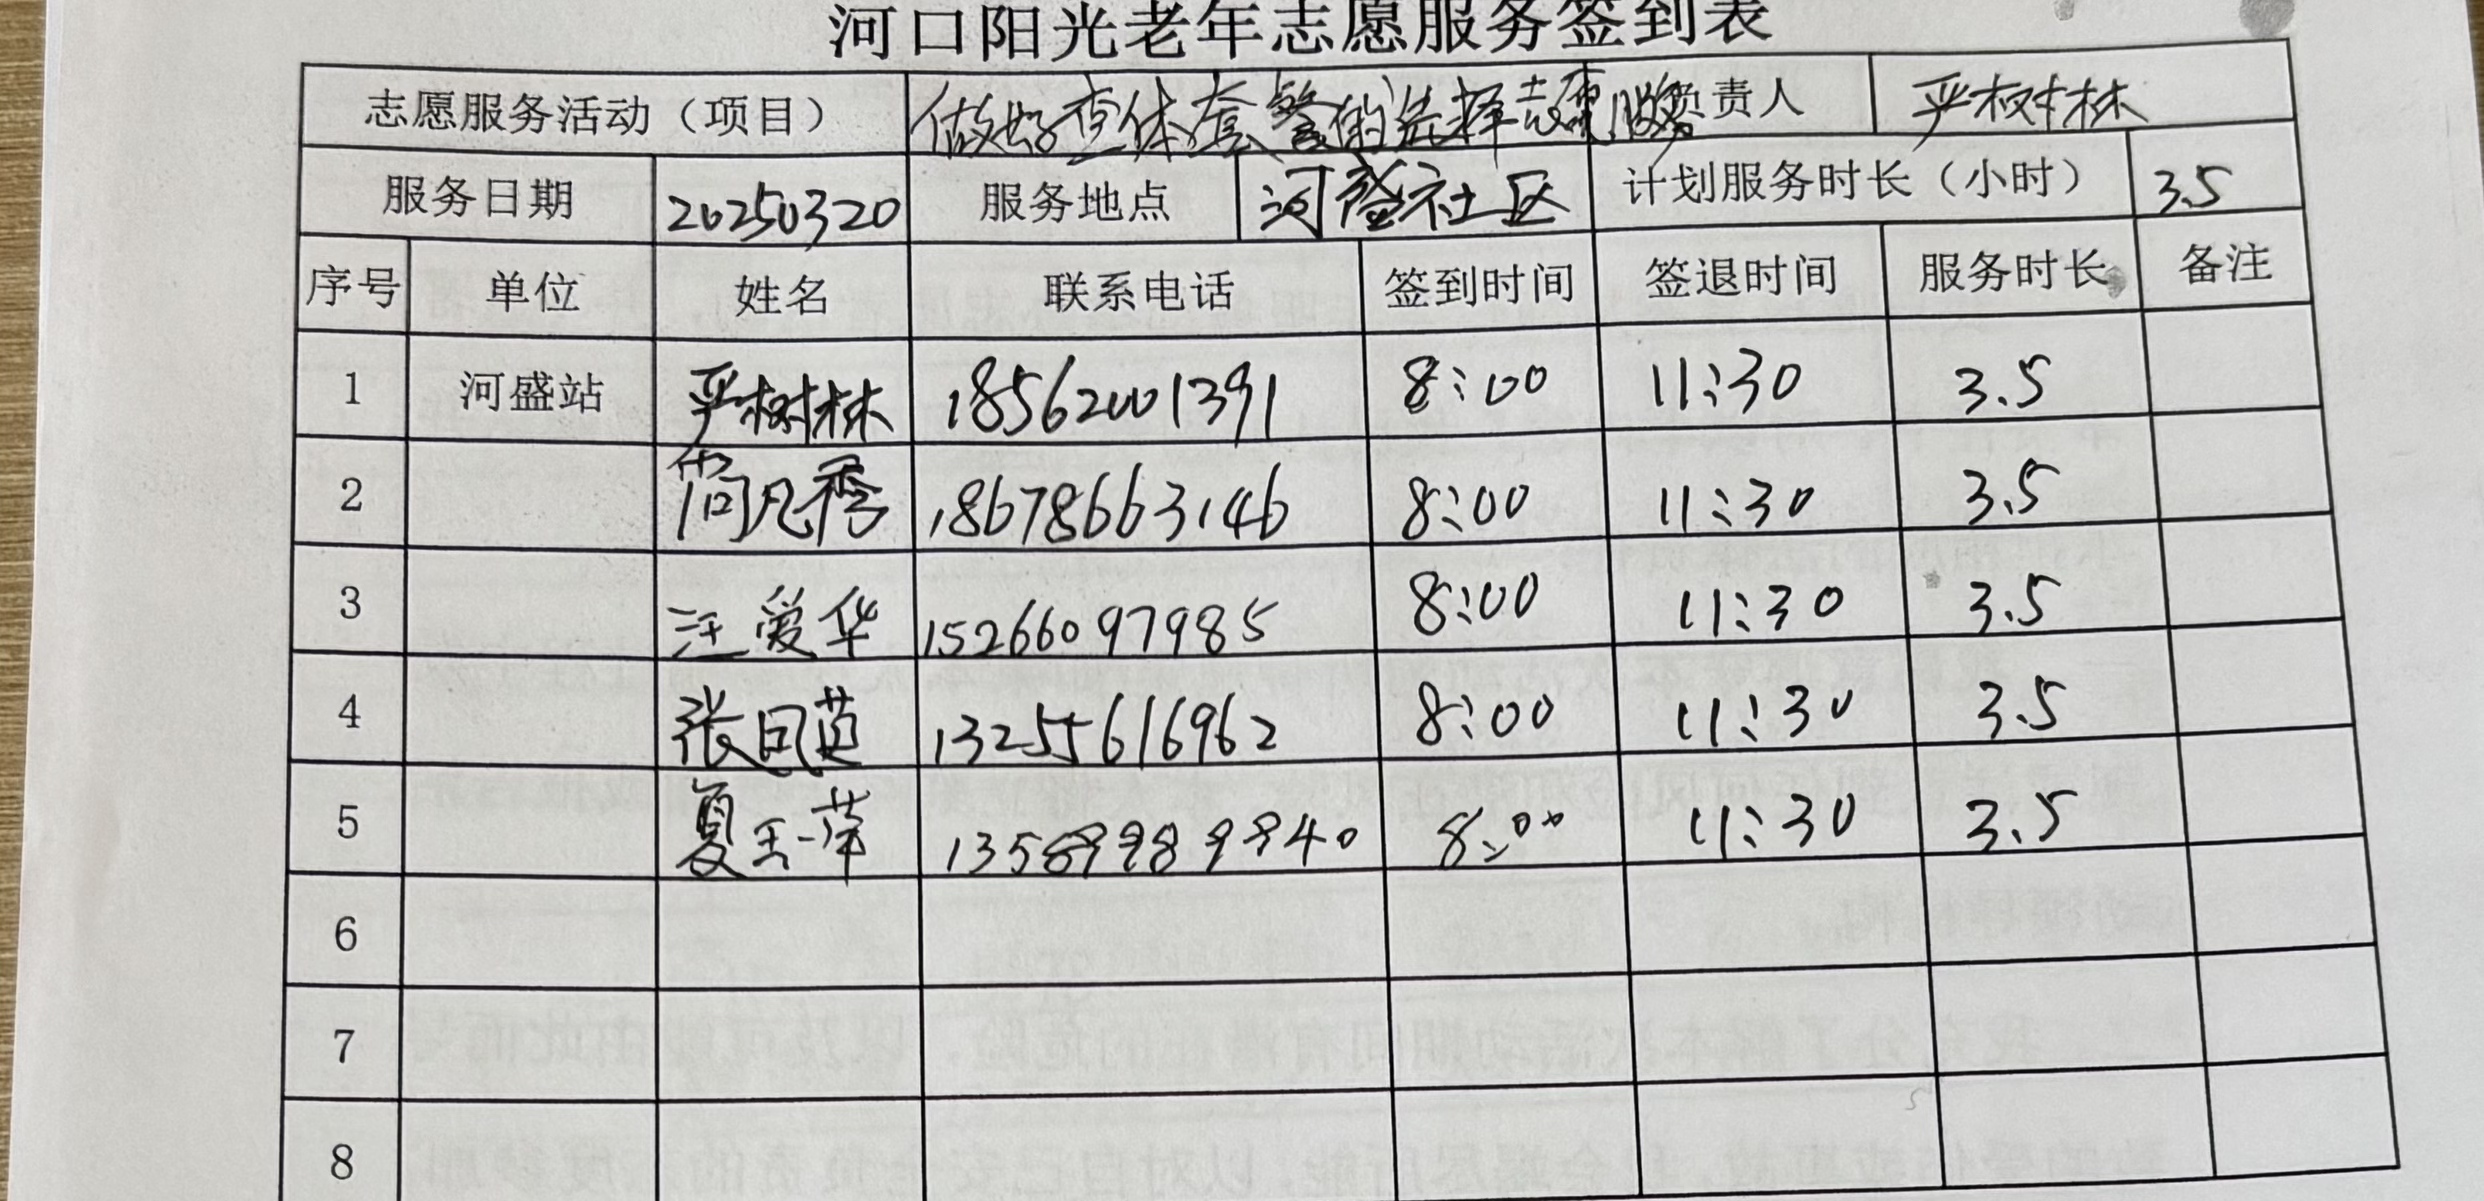 河口阳光老年志愿服务签到表
志愿服务活动（项目） 做好查体套餐的选择志愿服务 负责人 严树林
服务日期 20250320 服务地点 河盛社区 计划服务时长（小时） 3.5
序号 单位 姓名 联系电话 签到时间 签退时间 服务时长 备注
1 河盛站 严树林 18562001391 8:00 11:30 3.5
2 18678663146 8:00 11:30 3.5
3 汪爱华 15266097985 8:00 11:30 3.5
4 张日英 13255616962 8:00 11:30 3.5
5 夏玉萍 13589989940 8:00 11:30 3.5
6
7
8